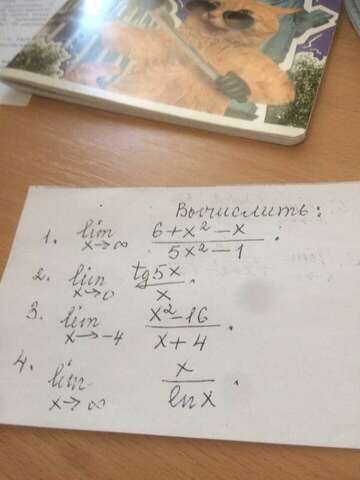 Вычислить:
1. lim x→∞ (6+x²-x)/(5x²-1).
2. lim x→0 tg5x/x.
3. lim x→-4 (x²-16)/(x+4).
4. lim x→∞ x/lnx.